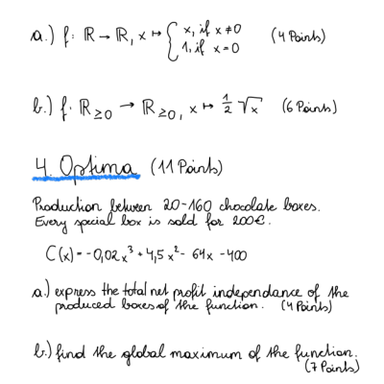 a.) f: ℝ → ℝ, x ↦ { x, if x ≠ 0 (4 Points)
1, if x = 0
b.) f: ℝ≥0 → ℝ≥0, x ↦ 1/2 √x (6 Points)
4. Optima (11 Points)
Production between 20-160 chocolate boxes.
Every special box is sold for 200€.
C(x) = -0,02x³ + 4,5x² - 64x - 400
a.) express the total net profit independance of the
produced boxes of the function. (4 Points)
b.) find the global maximum of the function.
(7 Points)